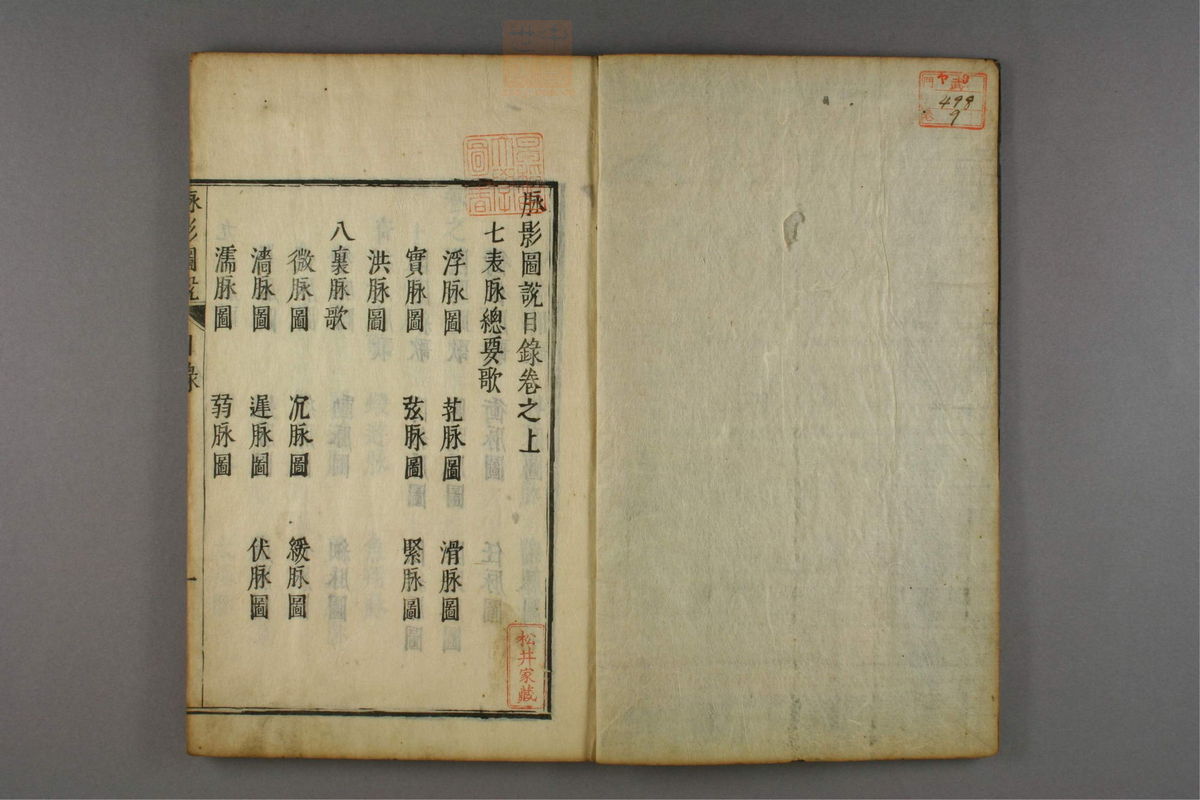 498
9
脉影圖說目錄卷之上
七表脉總要歌
浮脉圖 芤脉圖 滑脉圖
實脉圖 弦脉圖 緊脉圖
洪脉圖
八裏脉歌
微脉圖 沉脉圖 緩脉圖
濇脉圖 遲脉圖 伏脉圖
濡脉圖 弱脉圖
脉影圖說 目錄 一
松井家藏